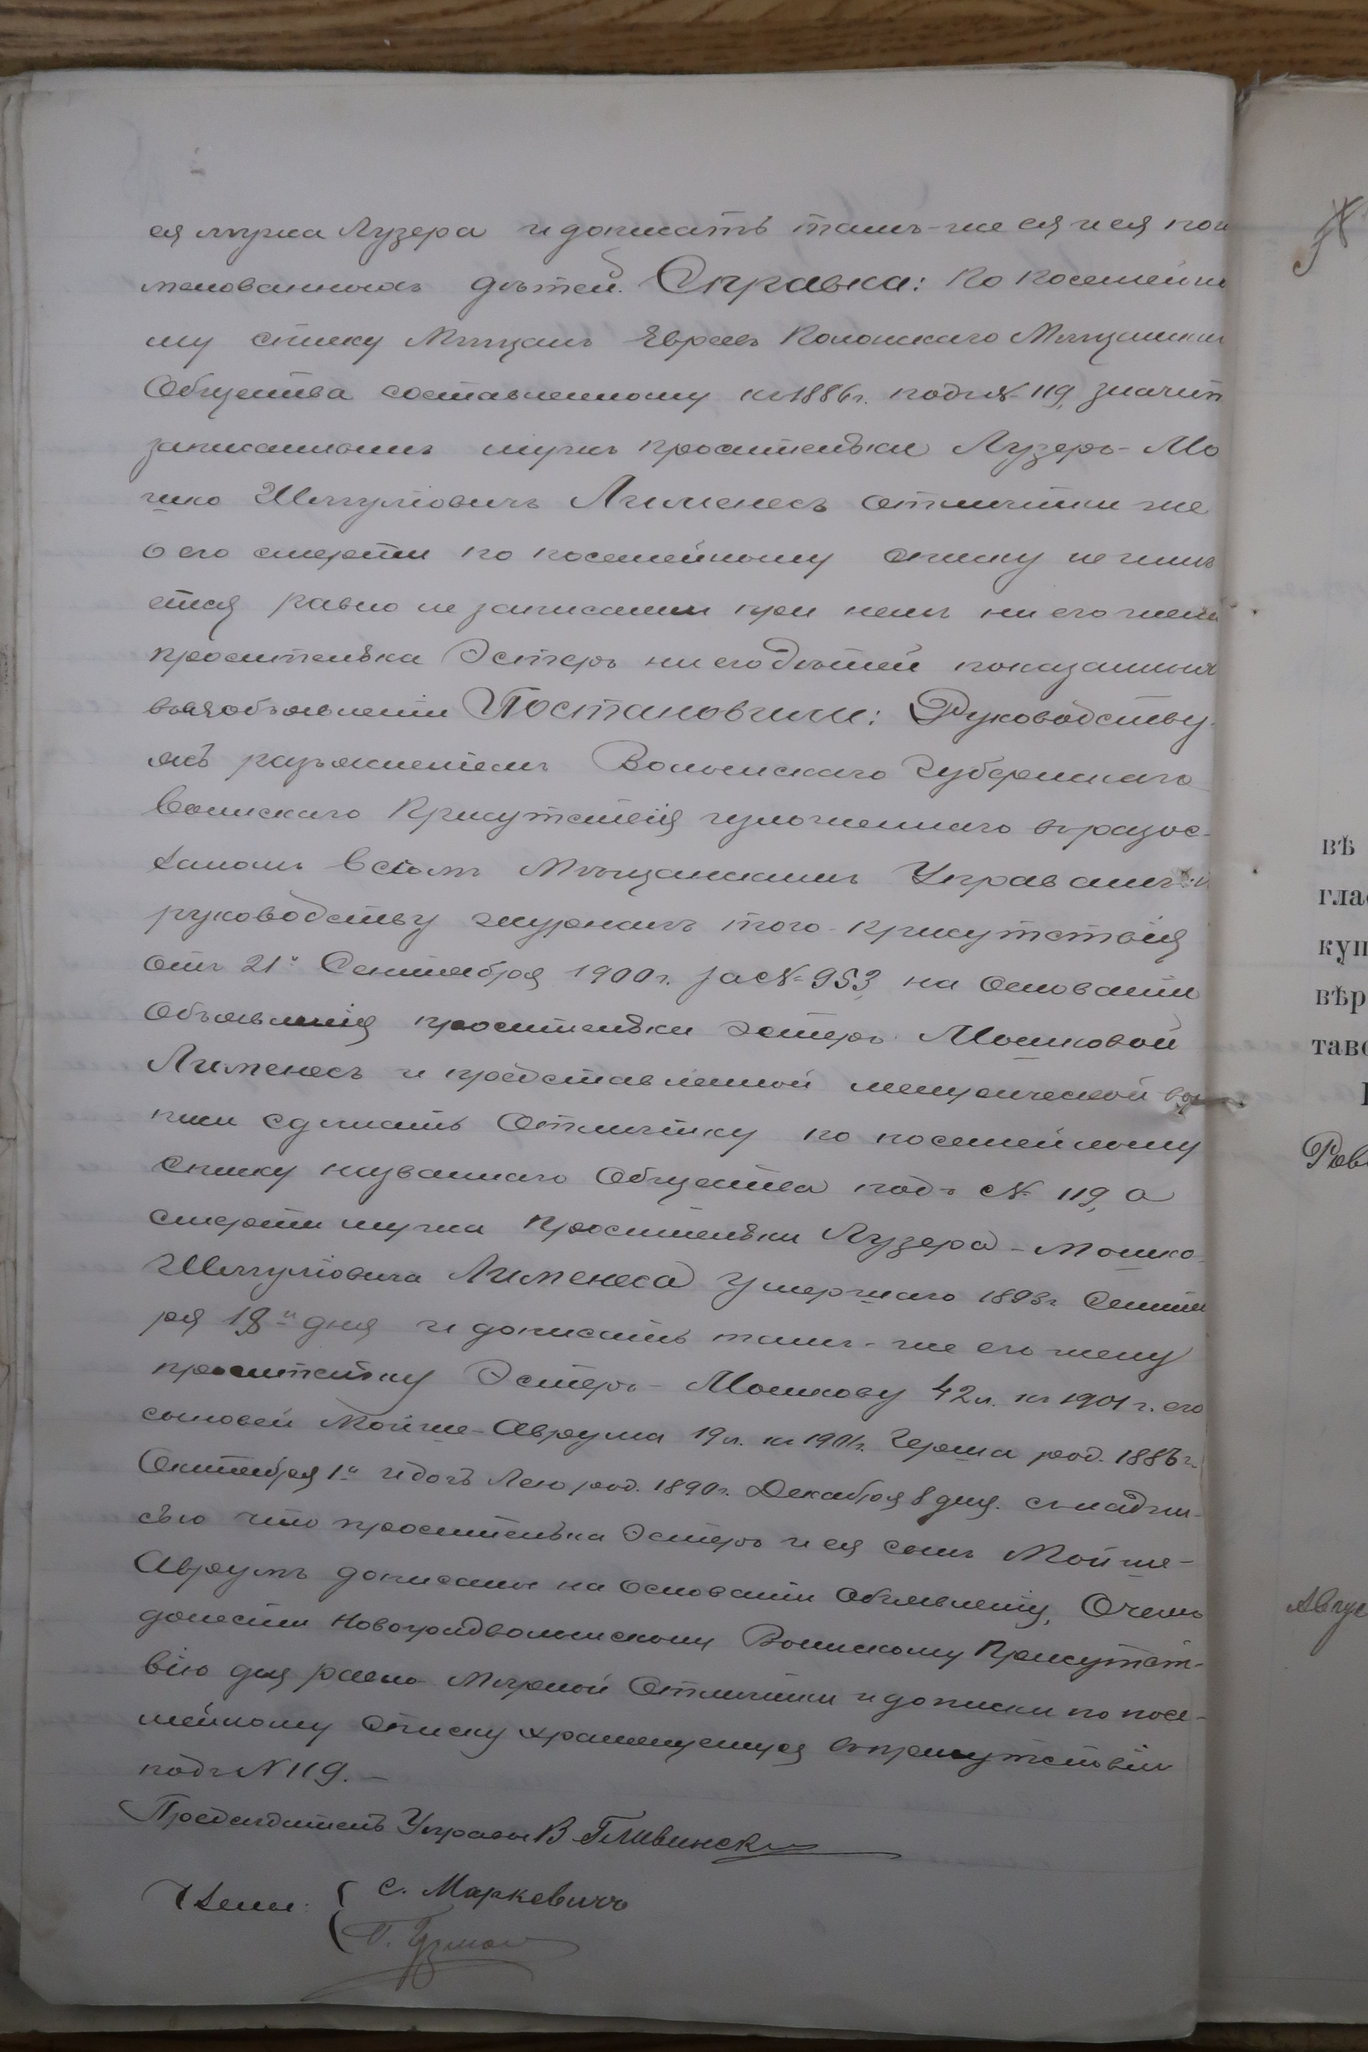 ея мужа Лузера и дописать тамъ-же ея и ея пои
менованныхъ дѣтей. Справка: По посемейно
му списку Мѣщанъ Евреевъ Полонскаго Мѣщанскаго
Общества составленному въ 1886 г. подъ № 119, значит
записаннымъ мужъ просительки Лузеръ-Мо
шко Шмуліовичъ Лименесъ отмѣтки же
о его смерти по посемейному списку не имѣ
ется равно не записаны при немъ ни его жена
просителька Эстеръ ни его дѣтей показанныхъ
въ ея объявленіи Постановили: Руководству-
ясь разъясненіемъ Волынскаго Губернскаго
Воинскаго Присутствія изложеннаго въ разос-
ланомъ всѣмъ Мѣщанскимъ Управамъ къ
руководству журналѣ того-Присутствія
отъ 21го Сентября 1900 г. за № 953, на основаніи
Объявленія просительки Эстеръ Мошковой
Лименесъ и представленной метрической вы
писи сдѣлать Отмѣтку по посемейному
списку названнаго Общества подъ № 119, о
смерти мужа просительки Лузера-Мошко
Шмуліовича Лименеса умершаго 1893 г. Сентяб
ря 18го дня и дописать тамъ-же его жену
просительку Эстеръ-Мошкову 42 л. къ 1901 г. его
сыновей Мойше-Аврума 19 л. къ 1901 г. Герша род. 1886 г.
Октября 1го и дочь Лею род. 1890 г. Декабря 8 дня. съ надпи-
сью что просителька Эстеръ и ея сынъ Мойше-
Аврумъ дописаны на основаніи объявленія, О чемъ
донести Новоградволынскому Воинскому Присутст-
вію для равно мѣрной Отмѣтки и дописки по посе-
мейному списку хранящемуся въ присутствіи
подъ № 119.-
Предсѣдатель Управы В. Гливинск
Члены: { С. Маркевичъ
вѣ
глас
куп
вѣр
таво
Авгус